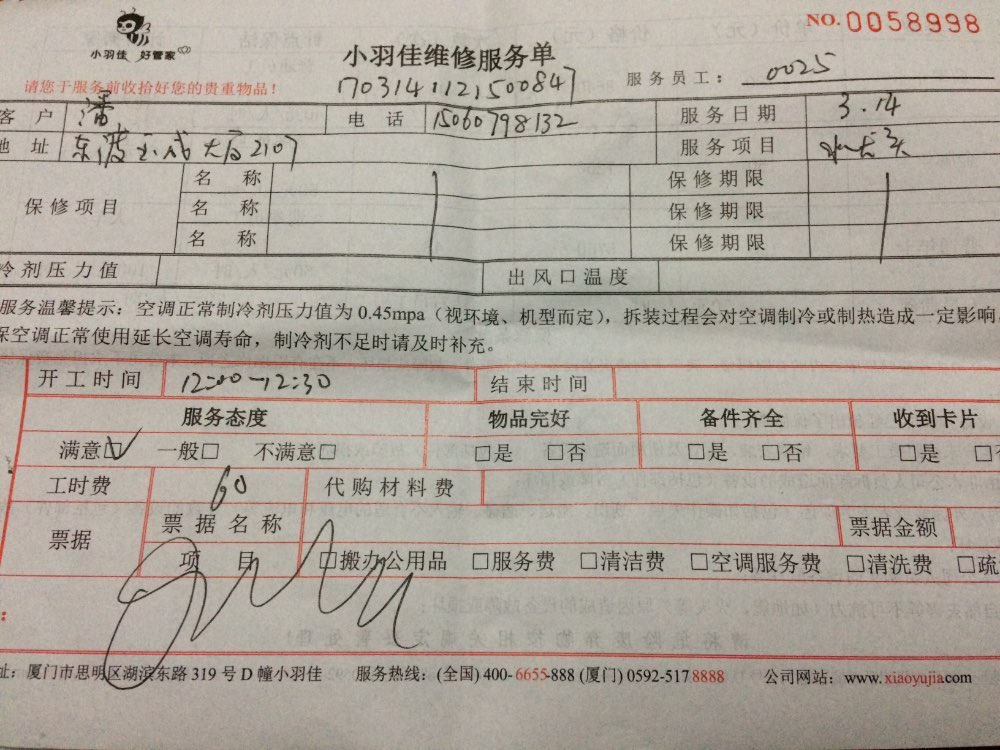 NO.0058998
小羽佳 好管家
小羽佳维修服务单
1703141121500847
服务员工: 0025
请您于服务前收拾好您的贵重物品!
客 户 潘 电 话 15060798132 服务日期 3.14
地 址 东渡 大石2107 服务项目 水龙头
保修项目 名 称 保修期限
名 称 保修期限
名 称 保修期限
冷剂压力值 出风口温度
服务温馨提示: 空调正常制冷剂压力值为 0.45mpa (视环境、机型而定), 拆装过程会对空调制冷或制热造成一定影响
保空调正常使用延长空调寿命, 制冷剂不足时请及时补充。
开工时间 12:00-12:30 结束时间
服务态度 物品完好 备件齐全 收到卡片
满意☑ 一般□ 不满意□ □是 □否 □是 □否 □是 □
工时费 60 代购材料费
票据 票据名称 票据金额
项 目 □搬办公用品 □服务费 □清洁费 □空调服务费 □清洗费 □疏
址: 厦门市思明区湖滨东路 319 号 D 幢小羽佳 服务热线: (全国) 400-6655-888 (厦门) 0592-5178888 公司网站: www.xiaoyujia.com